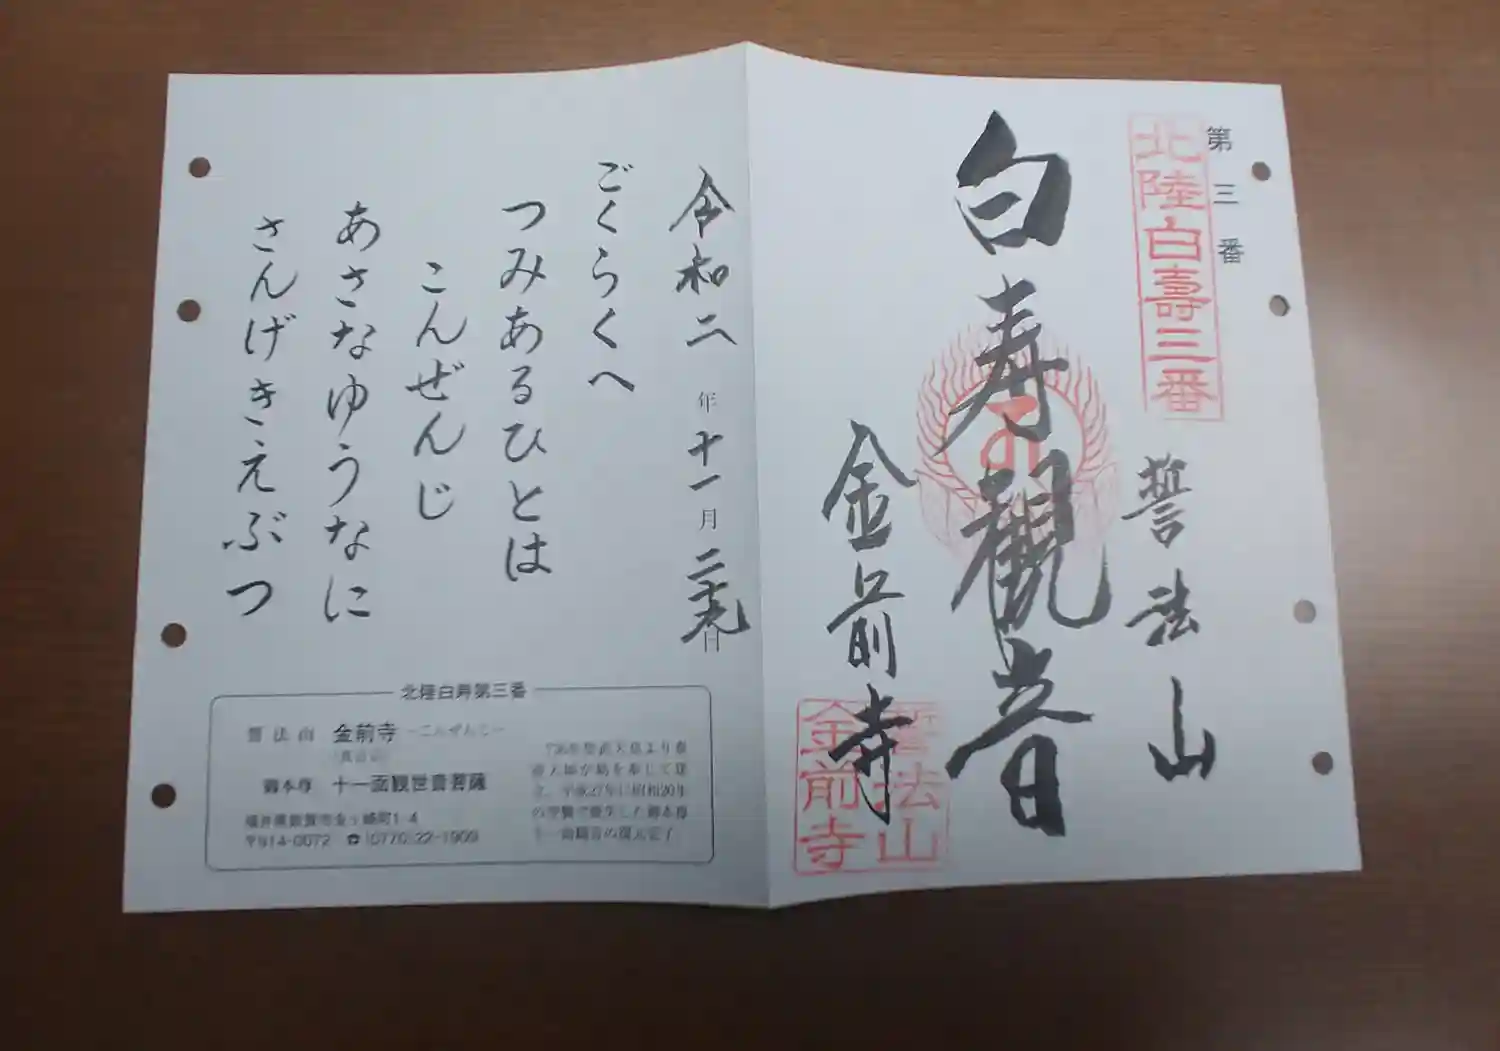 第三番
北陸白壽三番
誓法山
白寿観音
金前寺
誓法山
金前寺
令和二年十一月二十九日
ごくらくへ
つみあるひとは
こんぜんじ
あさなゆうなに
さんげきえぶつ
北陸白寿第三番
誓法山 金前寺 -こんぜんじ-
御本尊 十一面観世音菩薩
福井県敦賀市金ヶ崎町1-4
〒914-0072 ☎(0770)22-1909